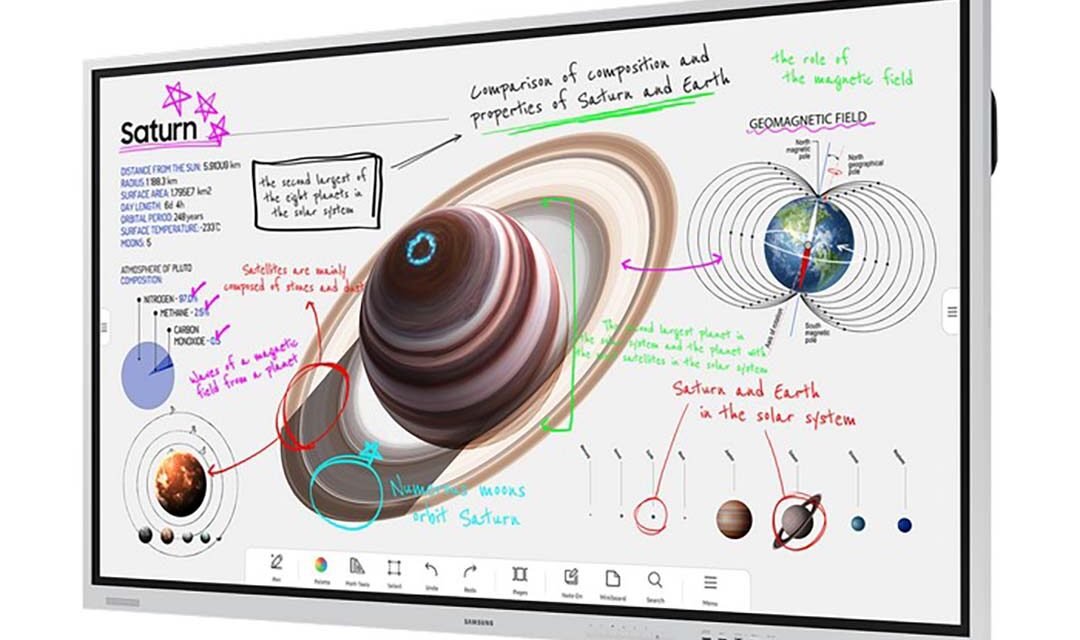 Saturn
DISTANCE FROM THE SUN: km
RADIUS: 1188.3 km
SURFACE AREA: 1.795E7 km2
DAY LENGTH: 6d 4h
ORBITAL PERIOD: 248 years
SURFACE TEMPERATURE: -233°C
MOONS: 5
the second largest of
the eight planets in
the solar system
Comparison of composition and
properties of Saturn and Earth
the role of
the magnetic field
GEOMAGNETIC FIELD
North
magnetic
pole
North
geographical
pole
Axis of motion
South
magnetic
pole
ATMOSPHERE OF PLUTO
COMPOSITION:
NITROGEN - 97.0%
METHANE - 2.5%
CARBON
MONOXIDE - 0.5
Satellites are mainly
composed of stones and dust
Waves of a magnetic
field from a planet
The second largest planet in
the solar system and the planet with
the most satellites in the solar system
Saturn and Earth
in the solar system
Numerous moons
orbit Saturn
Pen
Palette
Math Tools
Select
Undo
Redo
Pages
Note On
Miniboard
Search
Menu
SAMSUNG